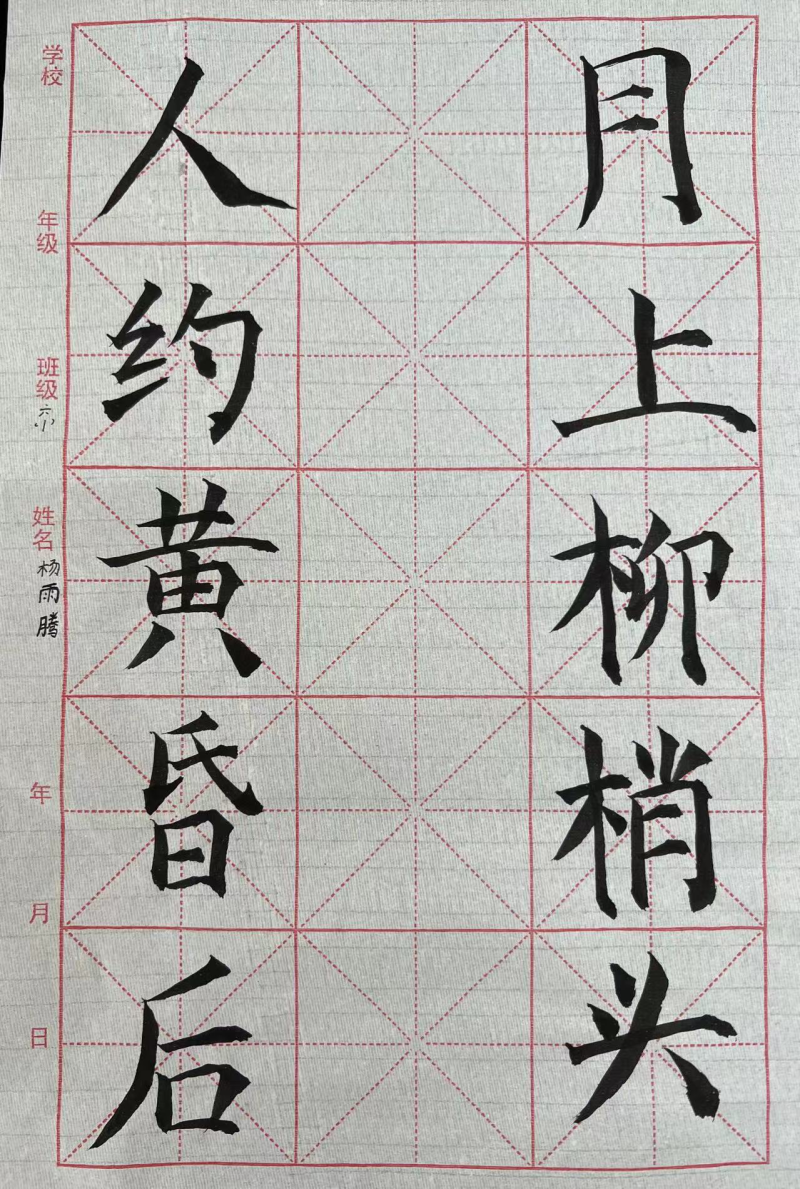 月上柳梢头
人约黄昏后
学校
年级
班级 六小
姓名 杨雨腾
年 月 日